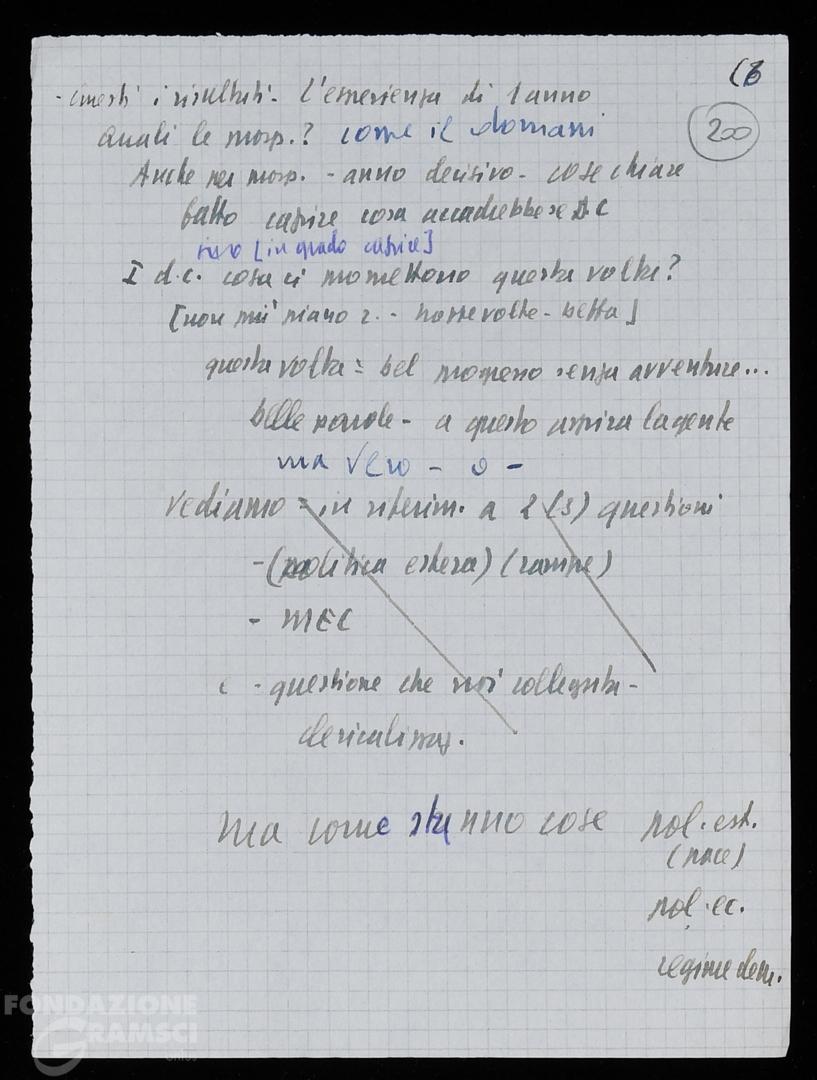 (8
200
- Questi i risultati. L'esperienza di 1 anno
Quali le prosp.? come il domani
Anche per prosp. - anno decisivo - cose chiare
fatto capire cosa accadrebbe se DC
[in grado capire]
I d.c. cosa ci promettono questa volta?
[non più piano r. - - belfa]
questa volta = bel progresso senza avventure...
belle parole - a questo aspira la gente
ma vero - o -
Vediamo = in riferim. a 2 (3) questioni
- (politica estera) (rampe)
- MEC
e - questione che noi collegata -
clericalismo.
Ma come stanno cose pol. est.
(pace)
pol. ec.
regime dem.
FONDAZIONE
GRAMSCI
ONLUS